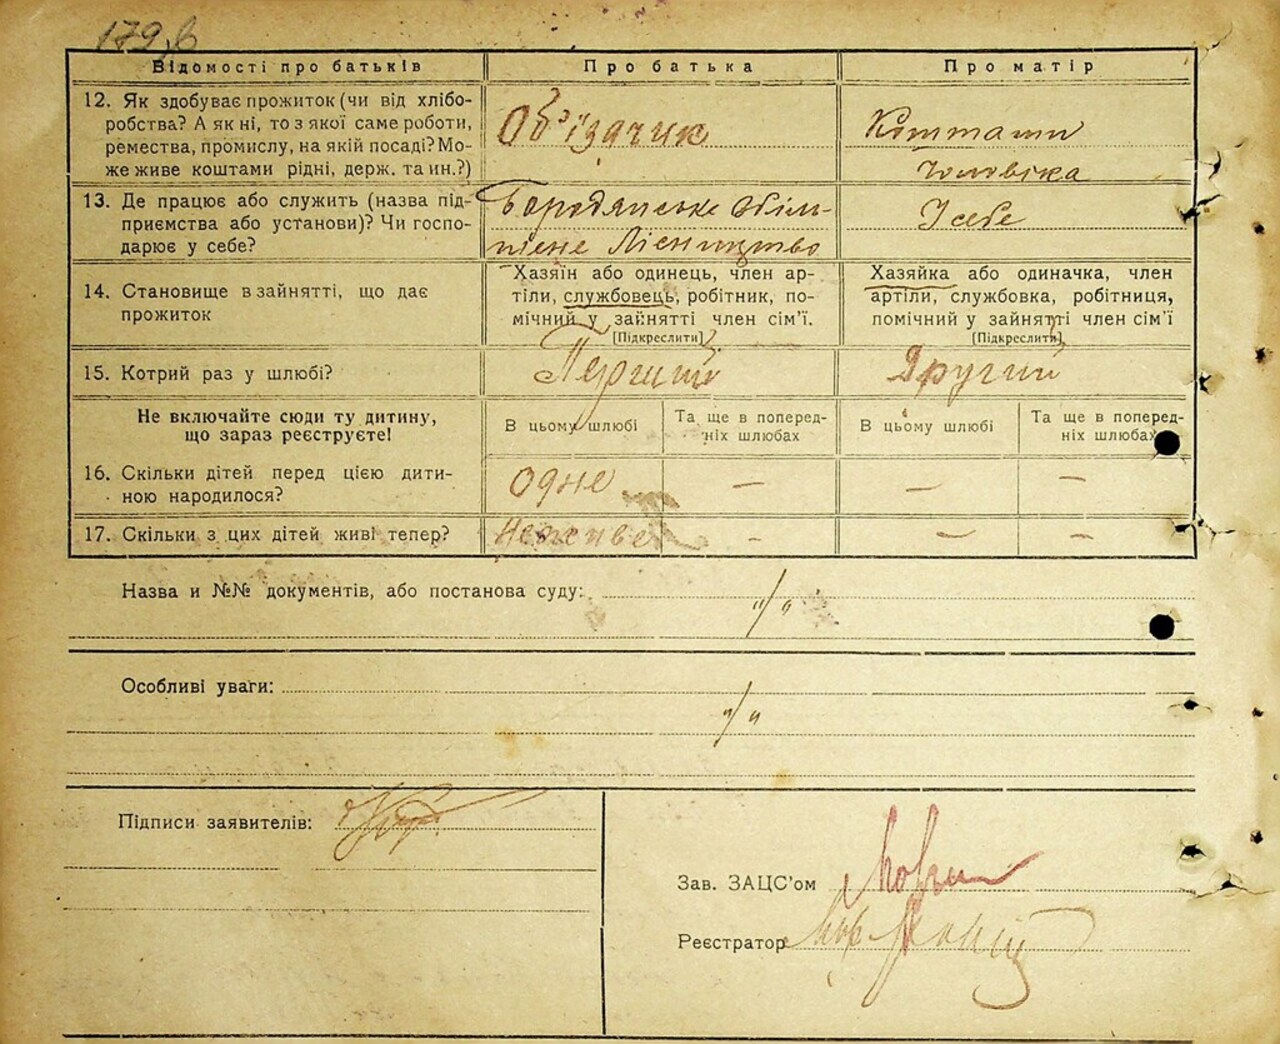 179,в
Відомості про батьків Про батька Про матір
12. Як здобуває прожиток (чи від хлібо-
робства? А як ні, то з якої саме роботи,
ремества, промислу, на якій посаді? Мо-
же живе коштами рідні, держ. та ин.?)
Об'їздчик
Коштами
Чоловіка
13. Де працює або служить (назва під-
приємства або установи)? Чи госпо-
дарює у себе?
Бородянське
Лісництво
У себе
14. Становище в зайнятті, що дає
прожиток
Хазяїн або одинець, член ар-
тіли, службовець, робітник, по-
мічний у зайнятті член сім'ї.
[Підкреслити]
Хазяйка або одиначка, член
артіли, службовка, робітниця,
помічний у зайнятті член сім'ї
[Підкреслити]
15. Котрий раз у шлюбі? Перший Другий
Не включайте сюди ту дитину,
що зараз реєструєте!
В цьому шлюбі
Та ще в поперед-
ніх шлюбах
В цьому шлюбі
Та ще в поперед-
ніх шлюбах
16. Скільки дітей перед цією дити-
ною народилося?
Одне — — —
17. Скільки з цих дітей живі тепер? Неживе — — —
Назва и №№ документів, або постанова суду: "/"
Особливі уваги: "/"
Підписи заявителів:
Зав. ЗАЦС'ом
Реєстратор